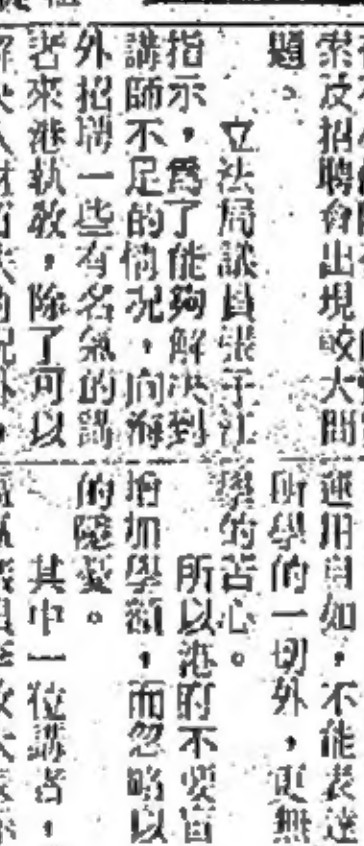 索及招聘會出現較大問
題。
立法局議員張子江
指示,爲了能夠解決到
講師不足的情況,向海
外招聘一些有名氣的講
者來港執教,除了可以
運用自如,不能表達
所學的一切外,更無
學的苦心。
所以港的不要盲
增加學額,而忽略以
的隱憂。
其中一位講者,